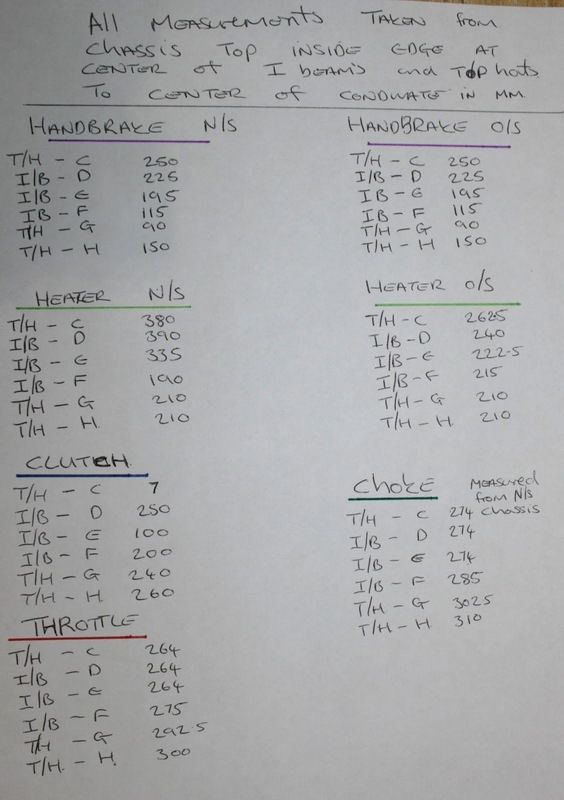 All MEASUREMENTS TAKEN from
CHASSIS TOP INSIDE EDGE AT
CENTER of I beams and TOP hats
To CENTER of CONDUATE IN MM.
HANDBRAKE N/S
T/H - C 250
I/B - D 225
I/B - E 195
IB - F 115
T/H - G 90
T/H - H 150
HANDBRAKE O/S
T/H - C 250
I/B - D 225
IB - E 195
IB - F 115
T/H - G 90
T/H - H 150
HEATER N/S
T/H - C 380
I/B - D 390
I/B - E 335
I/B - F 190
T/H - G 210
T/H - H. 210
HEATER O/S
T/H - C 2625
I/B - D 240
I/B - E 222.5
I/B - F 215
T/H - G 210
T/H - H 210
CLUTCH.
T/H - C 7
I/B - D 250
I/B - E 100
I/B - F 200
T/H - G 240
T/H - H. 260
CHOKE MEASURED
from N/S
chassis
T/H - C 274
I/B - D 274
I/B - E 274
I/B - F 285
T/H - G 3025
T/H - H 310
THROTTLE
T/H - C 264
I/B - D 264
I/B - E 264
I/B - F 275
T/H - G 292.5
T/H. - H. 300